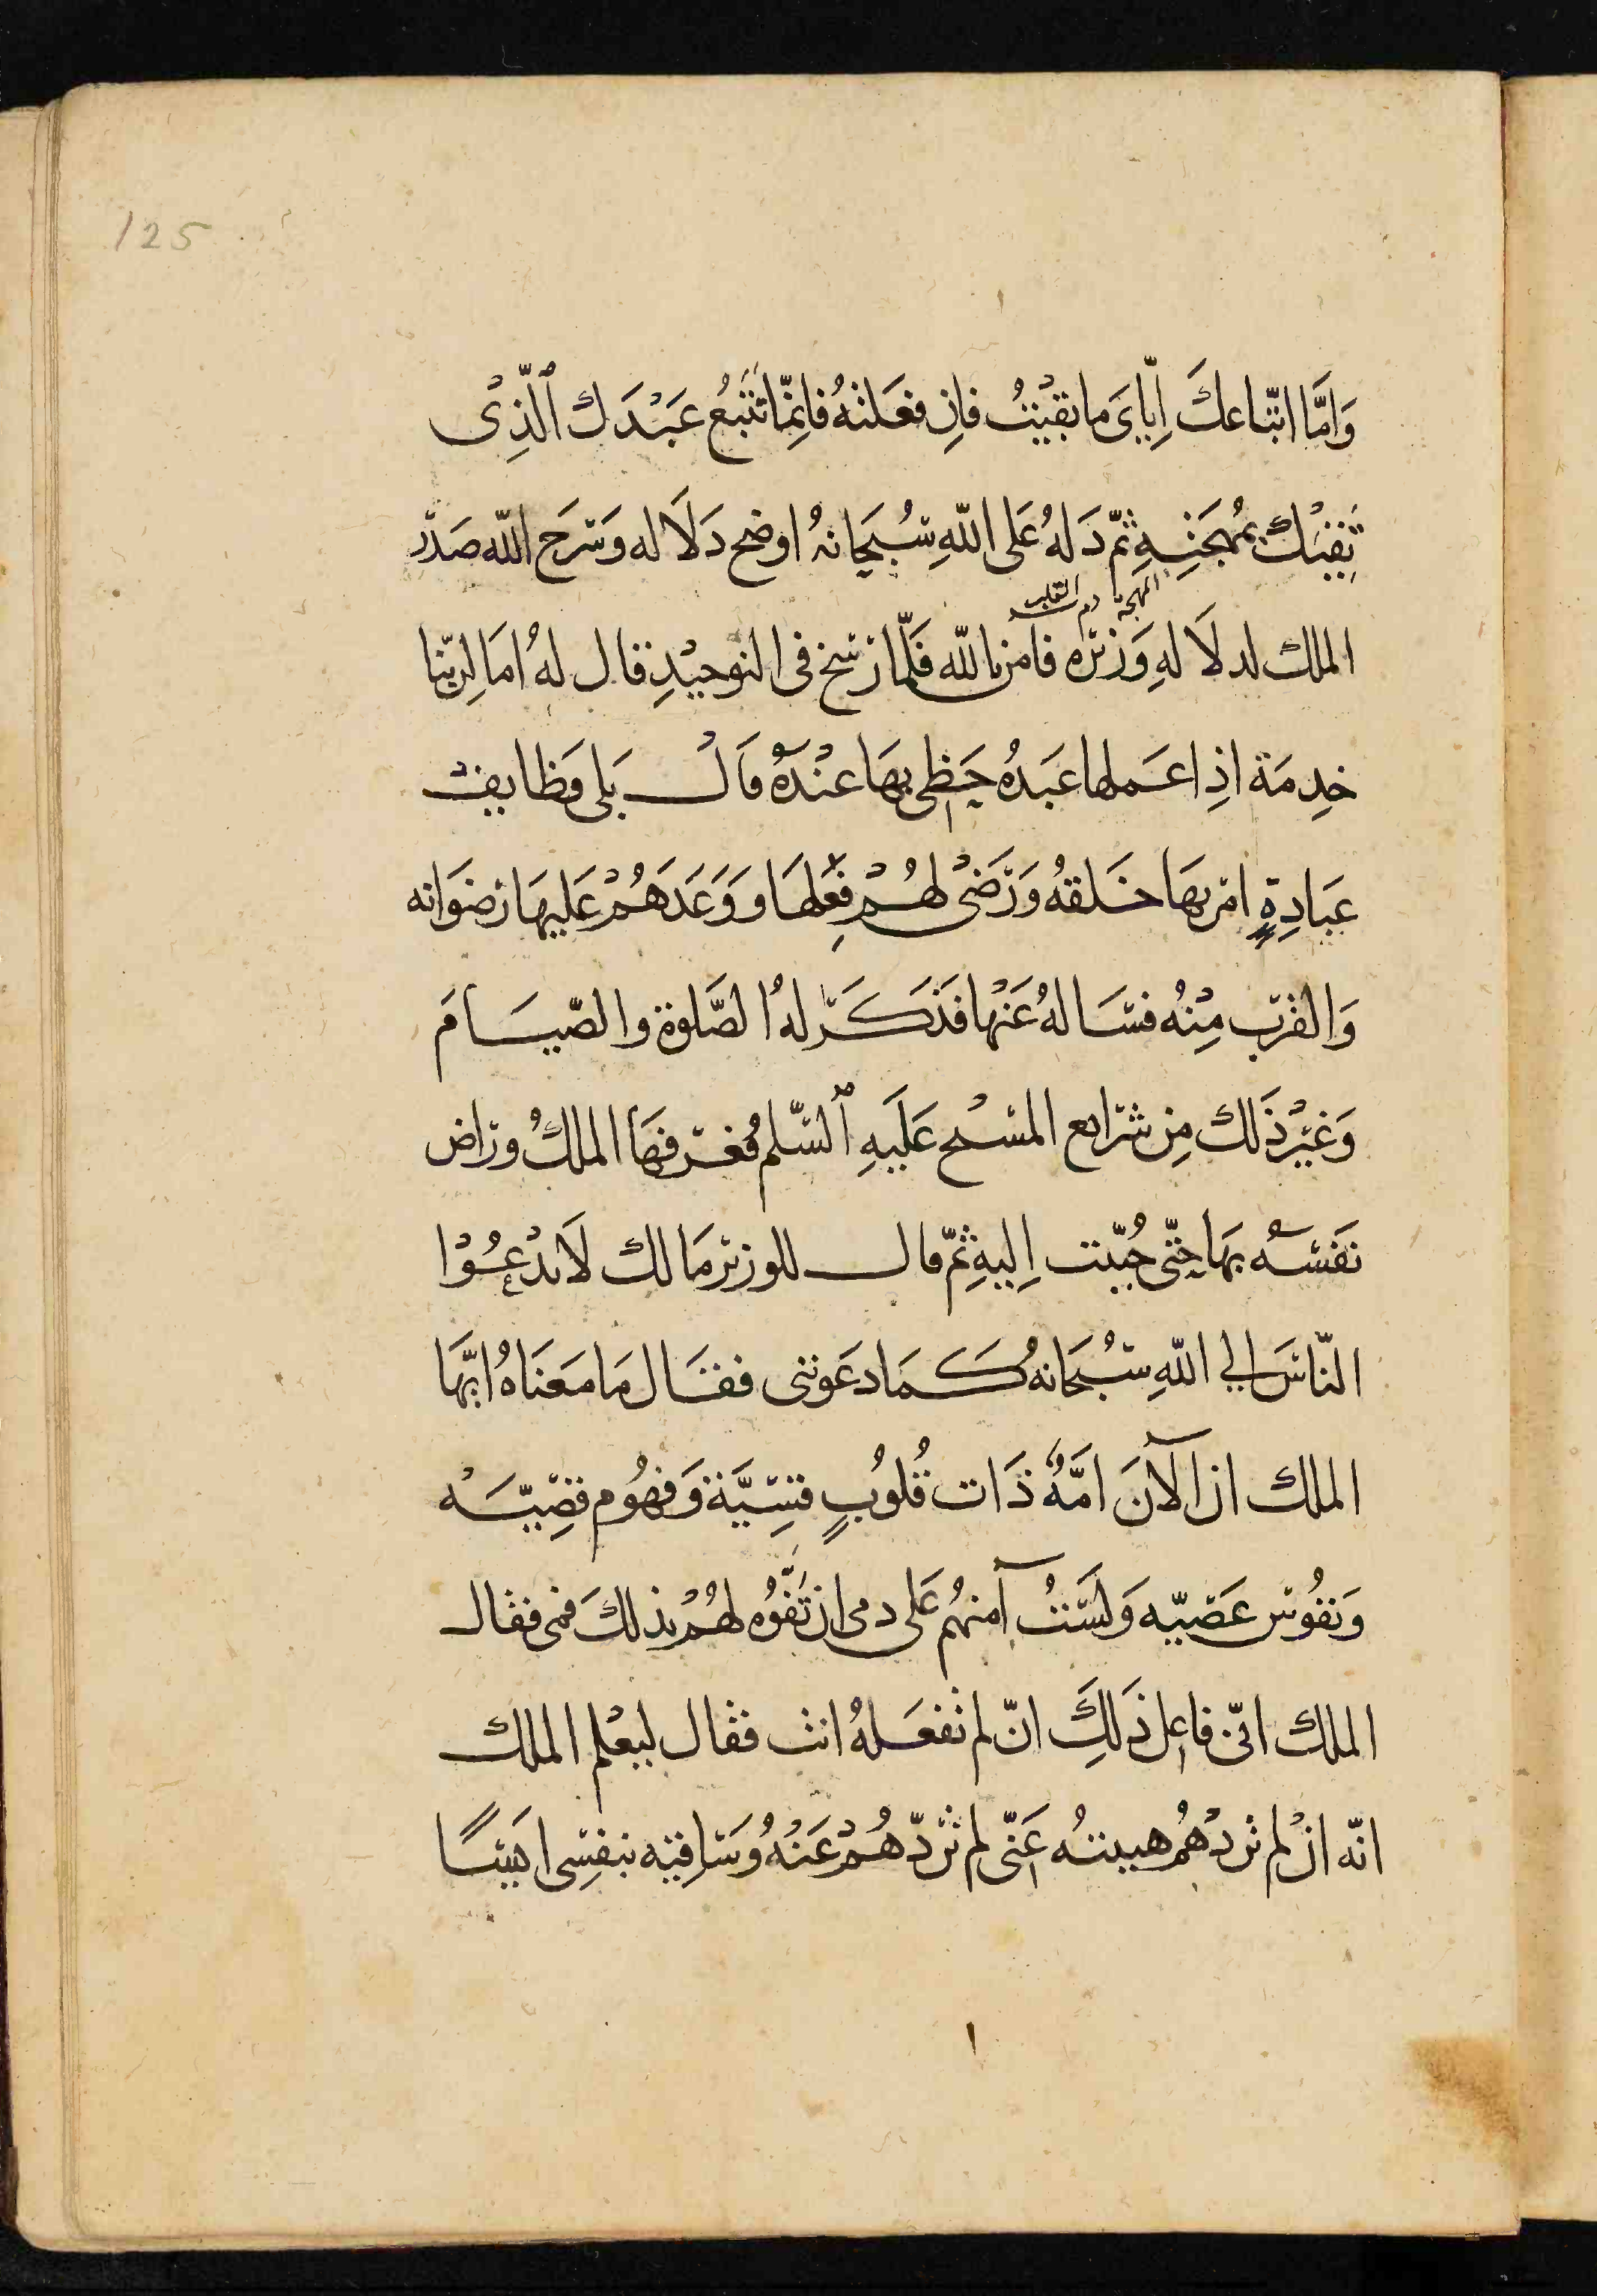 وَامَّا اتّباعكَ اِيّايَ ما بقيْتُ فاِن فعَلتهُ فانمّا تتّبعُ عَبْدَك ٱلّذِىْ
يَقيْك بمُهجَتِهِ ثمّ دَلهُ عَلى اللّهِ سُبحَانهُ اوضح دَلَاله وَشرَح اللّه صَدْر
المهجة دم القلب
الملك لدلَالهِ وَزيره فامن باللّه فَلّما رسَخ فى التوحيْدِ قال لهُ امَا لِرَبّنا
خدِمَة اذِا عَملها عَبَدُه حَظِى بهَا عنْدهُ قاَل بَلى وَظايفْ
عبَادِةٍ امر بهَا خَلقهُ وَرَضىْ لهُمْ فِعْلهَا وَوَعَدَهُمْ عَليهَا رضوَانه
وَالقرْب مِنْهُ فسَالهُ عَنْها فَذَكَرَ لهُ الصَّلوة والصّيَامَ
وَغيْرْ ذَلك مِن شرَايع المسْيح عَلَيهِ ٱلسّلم فعَرفهَا الملكُ وراض
نفسَهُ بهَا حتّى حُبّبت اِليهِ ثمّ قال للوزير مَا لك لاَ تدْعُوْا
النّاسَ الي اللّهِ سُبْحَانهُ كَمَا دعَوتنى فقَال مَا مَعنَاهُ ايّهَا
الملك ان الآنَ امَّةٌ ذَات قُلوُبٍ قسِيَّة وَفهُوم قصِيّه
وَنفُوس عَصَيّه وَلسَتُ آمنهُم عَلى دمى ان تَفَوُه لهُمْ بذلكَ فمى فقال
الملك انّى فاعِل ذَلِكَ انّ لم تفعَلهُ انت فقال ليعْلم الملك
انّه انْ لم تردْهُم هيبتهُ عَنّى لم تَردّهُمْ عَنْهُ وَسَاقيّه بنفسِى اهَيَبًا